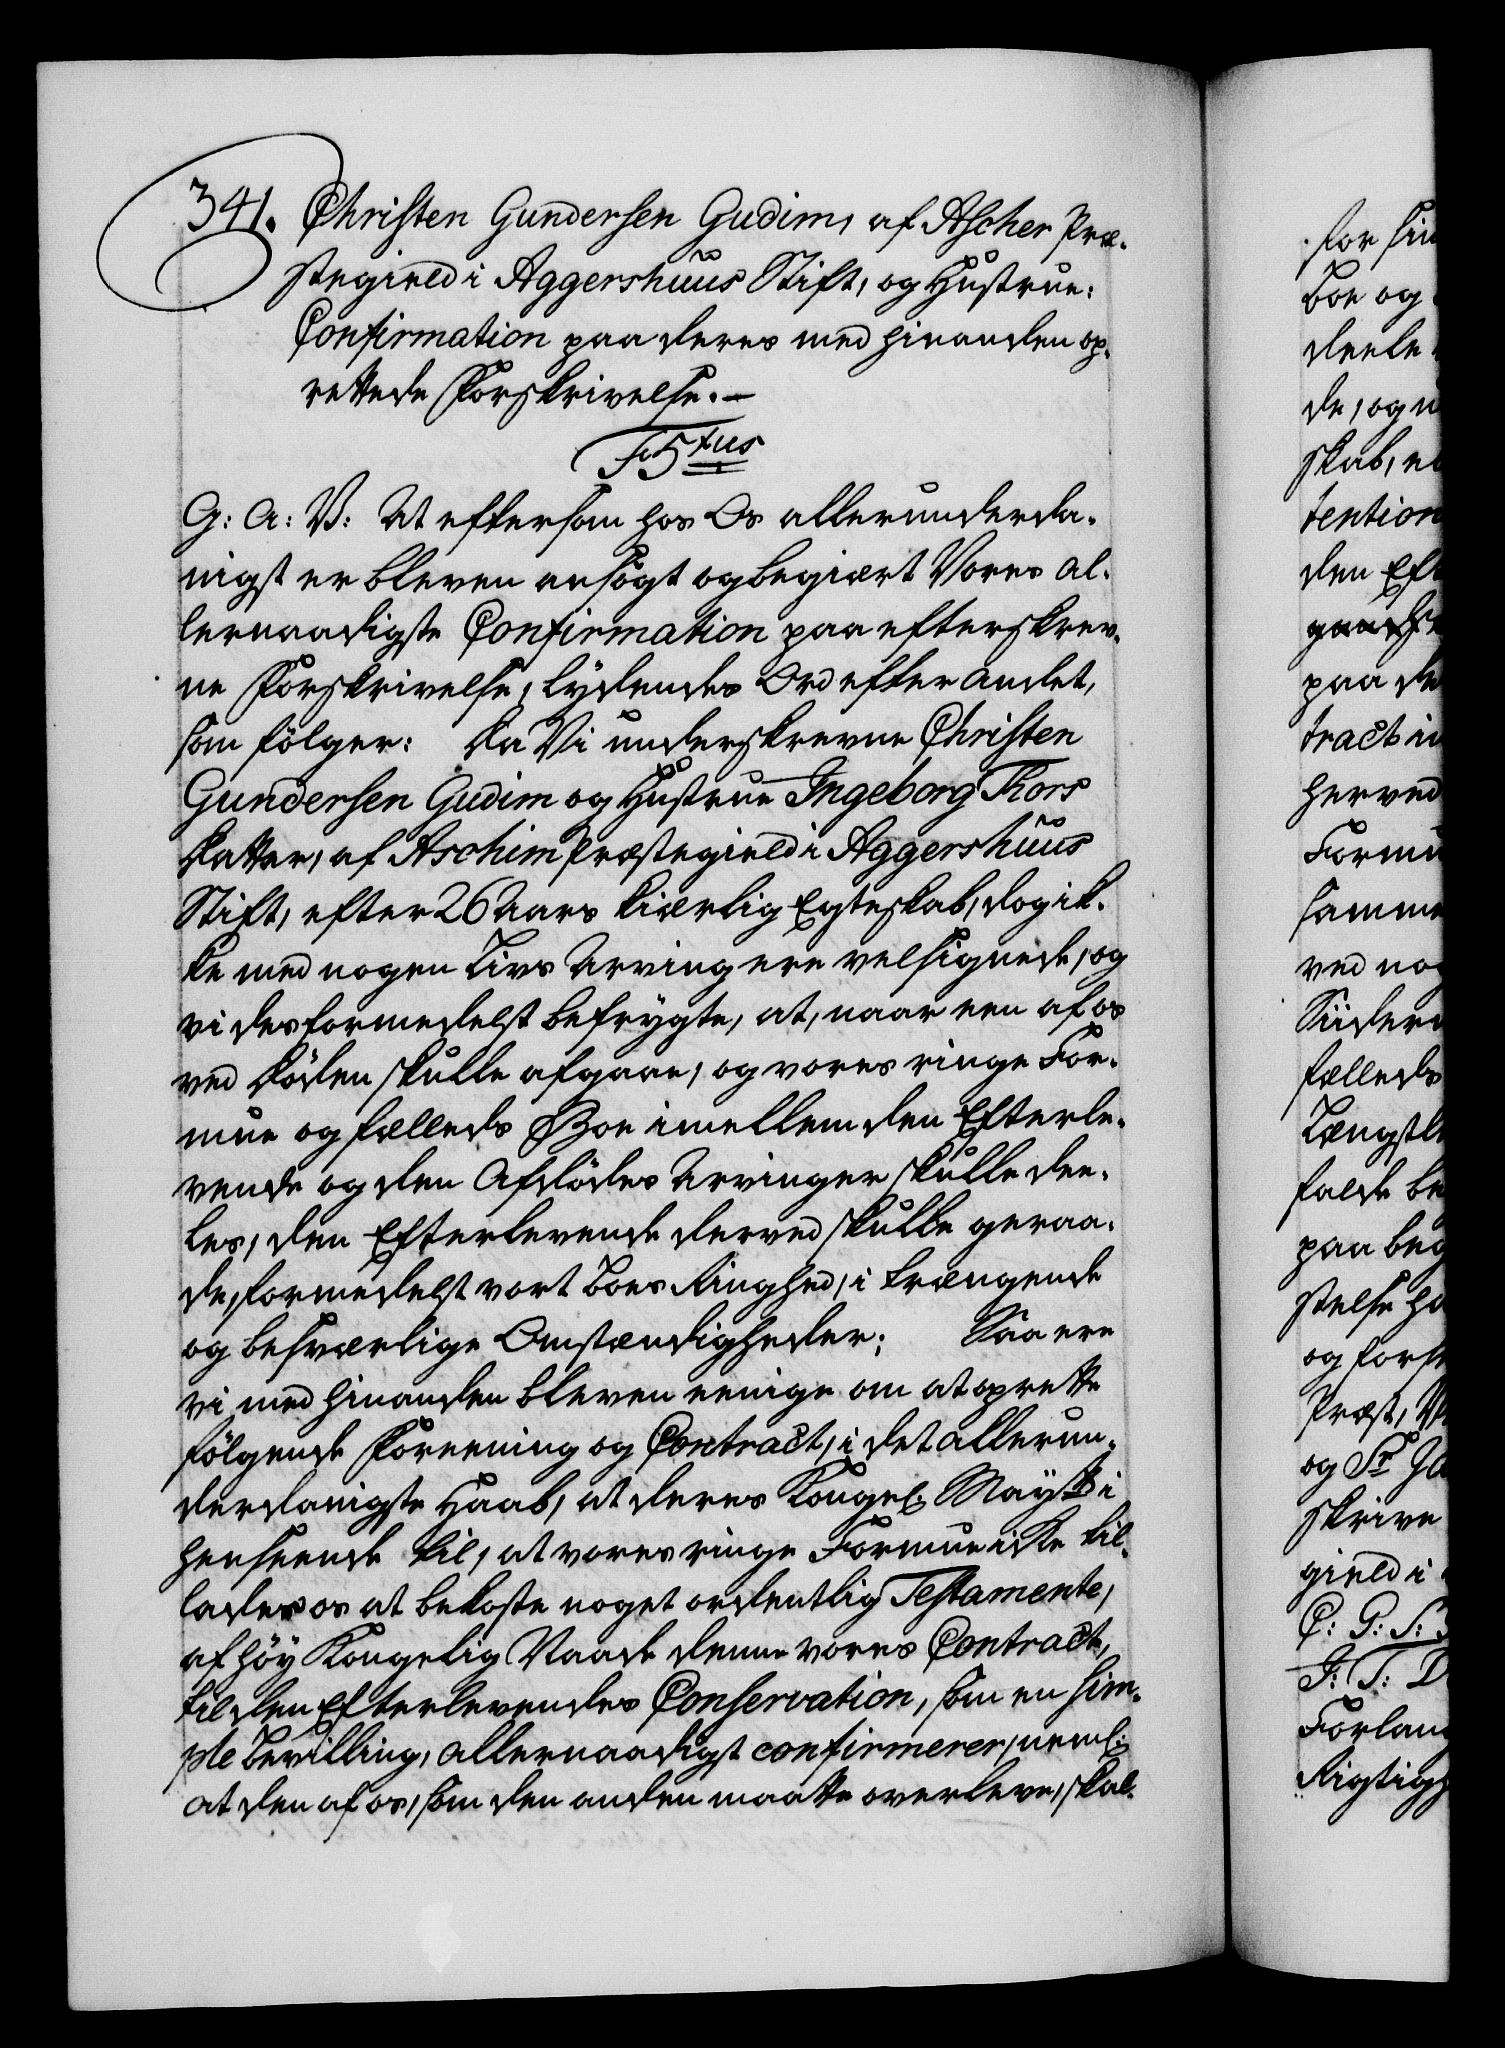 341. Christen Gundersen Gudim, af Ascher Præ-
stegield i Aggershuus Stift, og Hustrue:
Confirmation paa deres med hinanden op-
rettede Forskrivelse. —
F5tus
G: A: V: At eftersom hos Os allerunderda-
nigst er bleven ansøgt og begiært Vores al-
lernaadigste Confirmation paa efterskrev-
ne Forskrivelse, lydendes Ord efter andet,
som følger: Da Vi underskrevne Christen
Gundersen Gudim og Hustrue Ingeborg Thors
Datter, af Aschim Præstegield i Aggershuus
Stift, efter 26 Aars kiærlig Egteskab, dog ik-
ke med nogen Livs Arving ere velsignede, og
vi desformedelst befrygte, at, naar een af os
ved Døden skulle afgaae, og vores ringe For-
mue og fælleds Boe imellem den Efterle-
vende og den Afdødes Arvinger skulle dee-
les, den Efterlevende derved skulle geraa-
de, formedelst vort Boes Ringhed, i trængende
og besværlige Omstændigheder; Saa ere
vi med hinanden bleven eenige om at oprette
følgende Foreening og Contract, i det allerun-
derdanigste Haab, at deres Kongel. Mayts i
henseende til, at vores ringe Formue icke til-
lader os at bekoste noget ordentlig Testamente,
af høy Kongelig Naade denne vores Contract,
til den Efterlevendes Conservation, som en sim-
ple Bevilling, allernaadigst confirmerer, neml:
at den af os, som den anden maatte overleve, skal
for sin
Boe og
deele
de, og u
skab,
tention
den Eft
paa de
tract in
herved
Formu
samme
ved nog
Siider
fælleds
Længstl
falde be
paa beg
stelse ha
og forse
Præst,
og Sr
skrive
gield i
C: G: S:
I: T: D
Forlang
Rigtigh